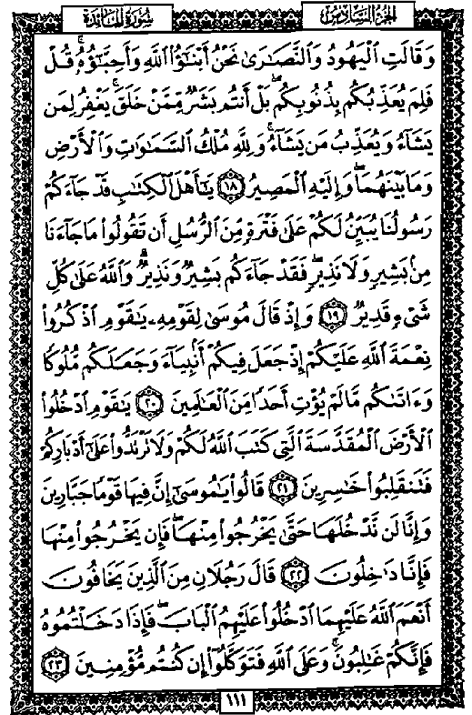 الجزء السادس
سورة المائدة
وَقَالَتِ الْيَهُودُ وَالنَّصَارَىٰ نَحْنُ أَبْنَاؤُا اللَّهِ وَأَحِبَّاؤُهُ قُلْ
فَلِمَ يُعَذِّبُكُم بِذُنُوبِكُم بَلْ أَنتُم بَشَرٌ مِّمَّنْ خَلَقَ يَغْفِرُ لِمَن
يَشَاءُ وَيُعَذِّبُ مَن يَشَاءُ وَلِلَّهِ مُلْكُ السَّمَاوَاتِ وَالْأَرْضِ
وَمَا بَيْنَهُمَا وَإِلَيْهِ الْمَصِيرُ ١٨ يَا أَهْلَ الْكِتَابِ قَدْ جَاءَكُمْ
رَسُولُنَا يُبَيِّنُ لَكُمْ عَلَىٰ فَتْرَةٍ مِّنَ الرُّسُلِ أَن تَقُولُوا مَا جَاءَنَا
مِن بَشِيرٍ وَلَا نَذِيرٍ فَقَدْ جَاءَكُم بَشِيرٌ وَنَذِيرٌ وَاللَّهُ عَلَىٰ كُلِّ
شَيْءٍ قَدِيرٌ ١٩ وَإِذْ قَالَ مُوسَىٰ لِقَوْمِهِ يَاقَوْمِ اذْكُرُوا
نِعْمَةَ اللَّهِ عَلَيْكُمْ إِذْ جَعَلَ فِيكُمْ أَنبِيَاءَ وَجَعَلَكُم مُّلُوكًا
وَءَاتَاكُم مَّا لَمْ يُؤْتِ أَحَدًا مِّنَ الْعَالَمِينَ ٢٠ يَاقَوْمِ ادْخُلُوا
الْأَرْضَ الْمُقَدَّسَةَ الَّتِي كَتَبَ اللَّهُ لَكُمْ وَلَا تَرْتَدُّوا عَلَىٰ أَدْبَارِكُمْ
فَتَنقَلِبُوا خَاسِرِينَ ٢١ قَالُوا يَامُوسَىٰ إِنَّ فِيهَا قَوْمًا جَبَّارِينَ
وَإِنَّا لَن نَّدْخُلَهَا حَتَّىٰ يَخْرُجُوا مِنْهَا فَإِن يَخْرُجُوا مِنْهَا
فَإِنَّا دَاخِلُونَ ٢٢ قَالَ رَجُلَانِ مِنَ الَّذِينَ يَخَافُونَ
أَنْعَمَ اللَّهُ عَلَيْهِمَا ادْخُلُوا عَلَيْهِمُ الْبَابَ فَإِذَا دَخَلْتُمُوهُ
فَإِنَّكُمْ غَالِبُونَ وَعَلَى اللَّهِ فَتَوَكَّلُوا إِن كُنتُم مُّؤْمِنِينَ ٢٣
١١١